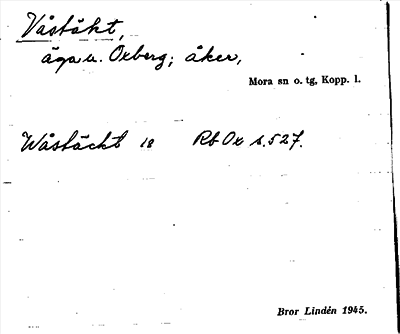 Våståkt,
äga u. Oxberg; åker,
Mora sn o. tg, Kopp. l.
Wåståckt 18 Rb Ox s. 527.
Bror Lindén 1945.